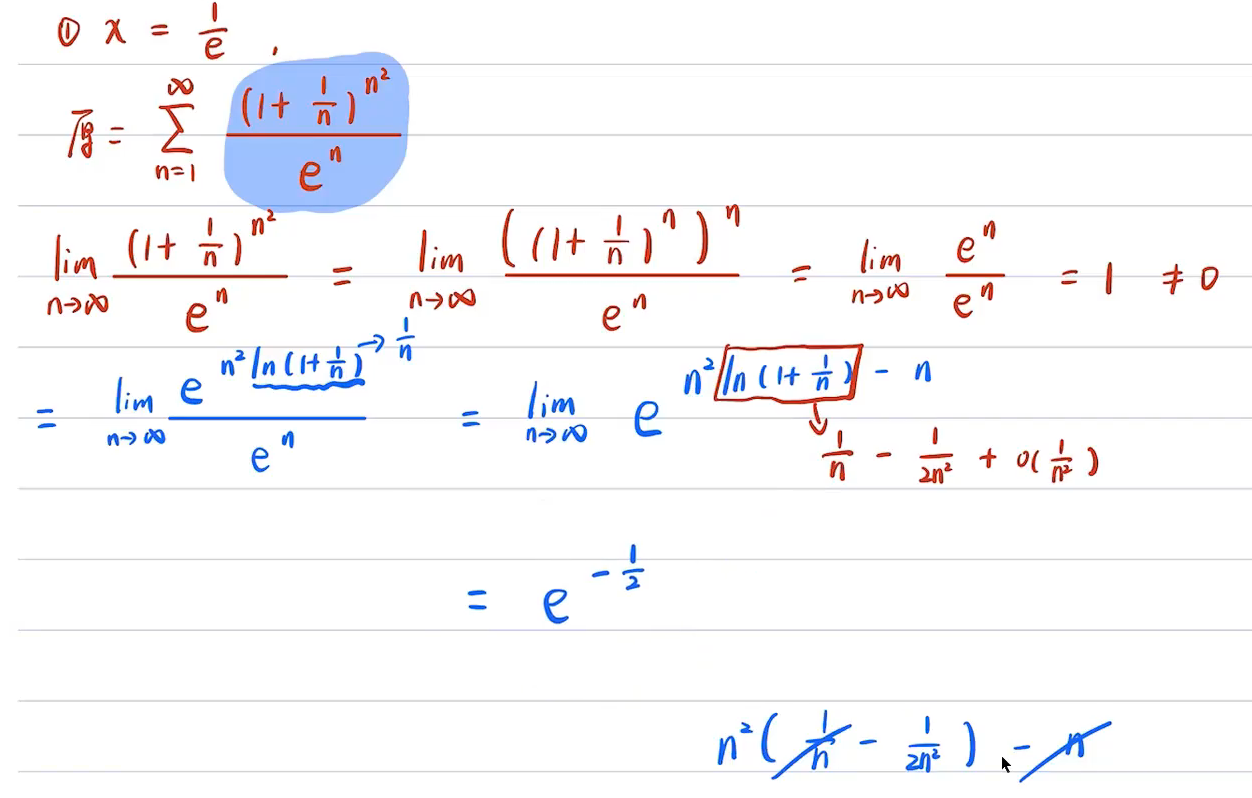 ① x = 1/e ,
原 = ∑_{n=1}^{∞} (1 + 1/n)^{n²} / e^n
lim_{n→∞} (1 + 1/n)^{n²} / e^n = lim_{n→∞} ((1 + 1/n)^n)^n / e^n = lim_{n→∞} e^n / e^n = 1 ≠ 0
= lim_{n→∞} e^{n² ln(1 + 1/n)} / e^n = lim_{n→∞} e^{n² ln(1 + 1/n) - n}
→ 1/n
↓ 1/n - 1/2n² + o(1/n²)
= e^{-1/2}
n² (1/n - 1/2n²) - n